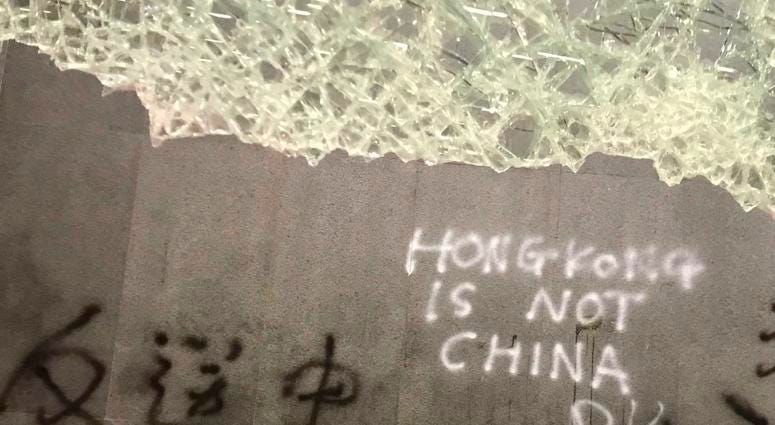 HONG KONG
IS NOT
CHINA
反送中